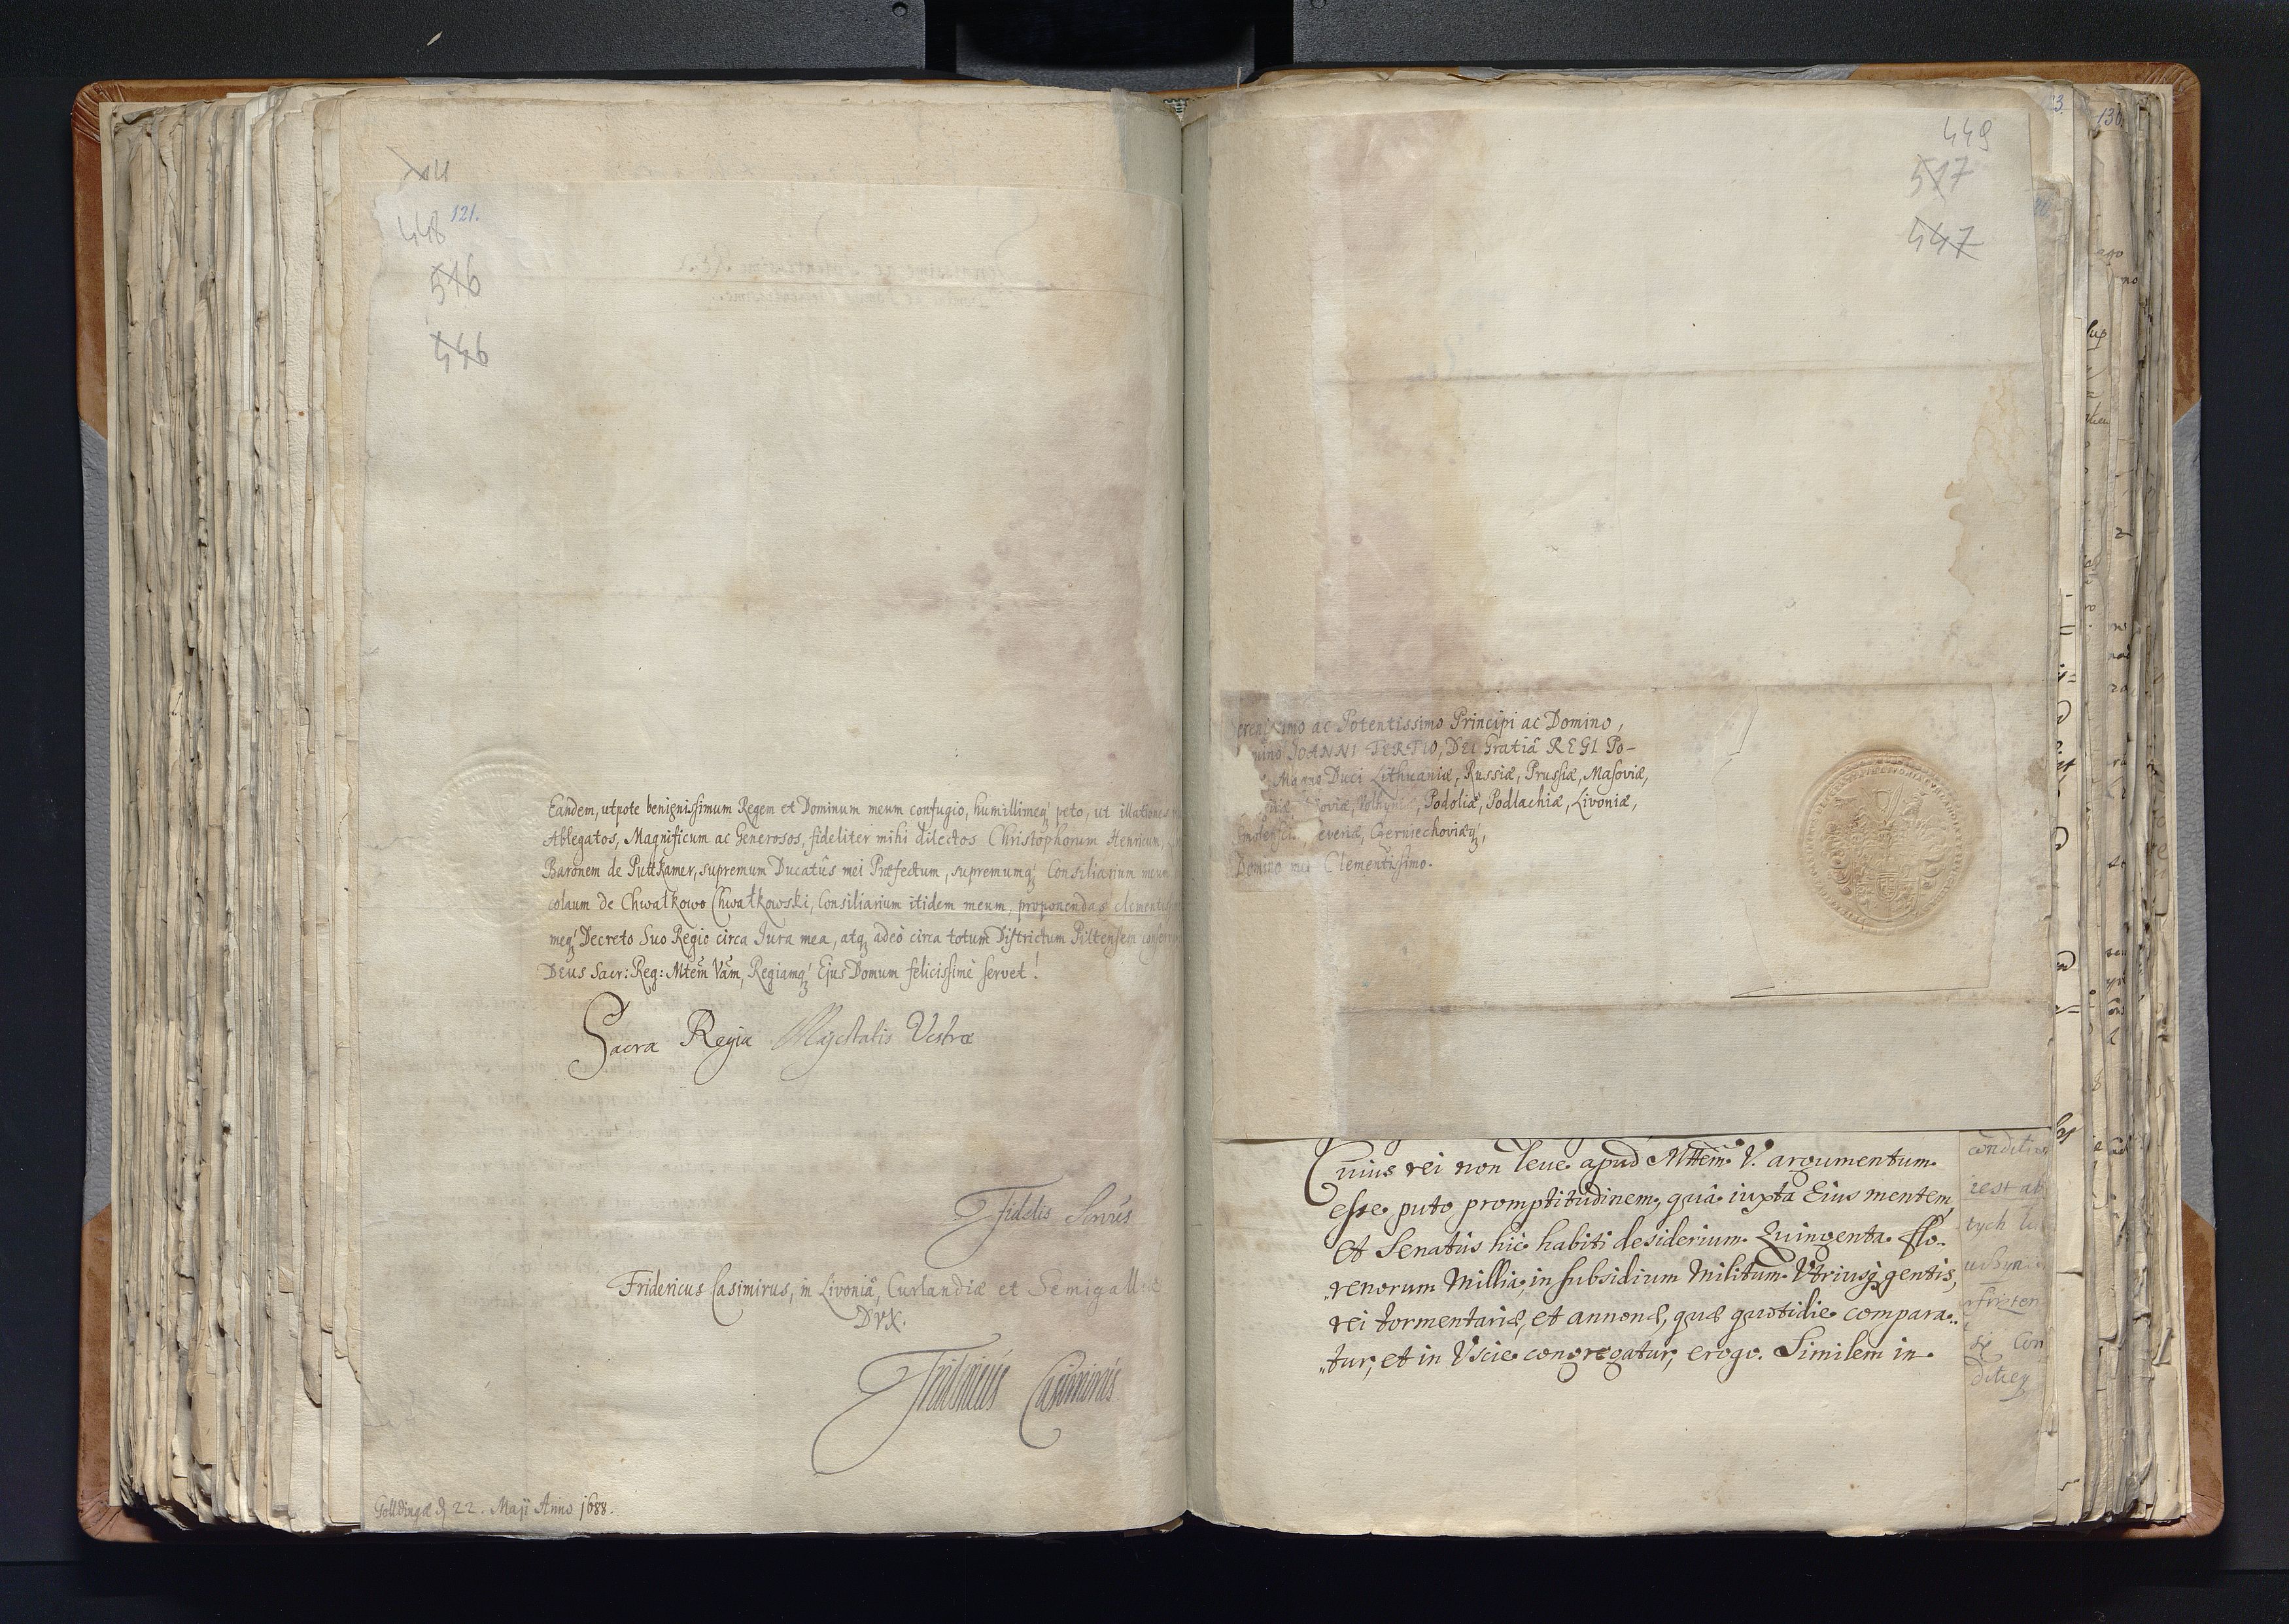 448
121.
516
446
Eandem, utpote benignissimum Regem et Dominum meum confugio, humillimeq; peto, ut illationes
Ablegatos, Magnificum ac Generosos, fideliter mihi dilectos Christophorum Henricum,
Baronem de Puttkamer, supremum Ducatûs mei Præfectum, supremumq; Consiliarium meum
colaum de Chwałkowo Chwałkowski, Consiliarium itidem meum, proponendas
meq; Decreto Suo Regio circa Jura mea, atq; adeò circa totum Districtum Piltensem
DEUS Sacr: Reg: Mtem Vam, Regiamq; Ejus Domum felicissimè servet!
Sacræ Regiæ Majestatis Vestræ
Fidelis Servus
Fridericus Casimirus, in Livoniâ, Curlandiæ et Semigalliæ
DVX.
Fridericus Casimirus
Golldingæ d 22. Maji Anno 1688.
449
517
447
130
mo ac Potentissimo Principi ac Domino,
JOANNI TERTIO, DEI Gratiâ REGI Po-
Magno Duci Lithuaniæ, Russiæ, Prussiæ, Masoviæ,
Volhyniæ, Podoliæ, Podlachiæ, Livoniæ,
Severiæ, Czerniechoviæq;,
Domino meo Clementissimo.
Cuius rei non leue apud Mttem V. argumentum
esse puto promptitudinem, quâ iuxta Eius mentem,
et Senatûs hic habiti desiderium Quingenta flo-
renorum Millia, in subsidium Militum Vtriusq; gentis,
rei tormentariæ, et annonæ, quæ quotidie compara-
tur, et in Vscie congregatur, erogo. Similem in
iest
tych
Con
ditiey